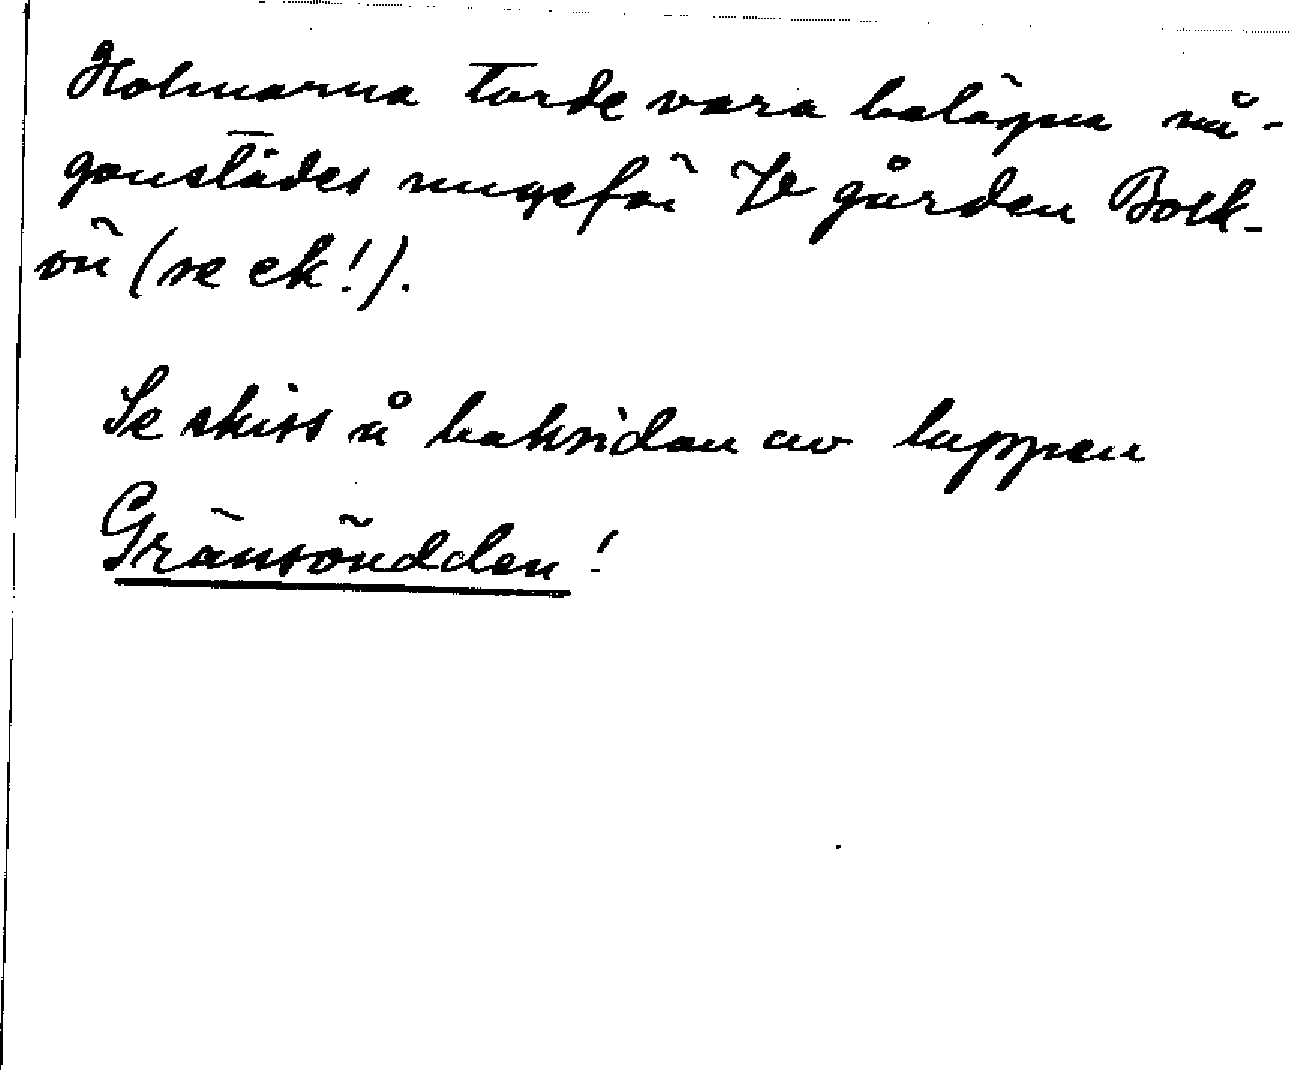 Holmarna torde vara belägna nå-
gonstädes ungefär gården Bock-
ön (se ek!).
Se skiss å baksidan av lappen
Gränsöudden!